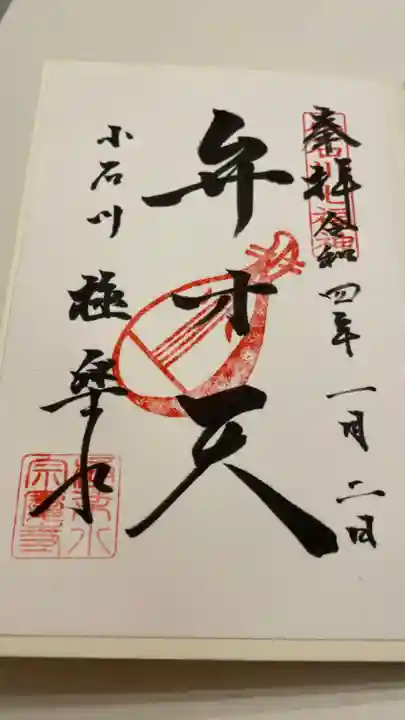 奉拝 令和四年 一月二日
弁才天
小石川 極楽水